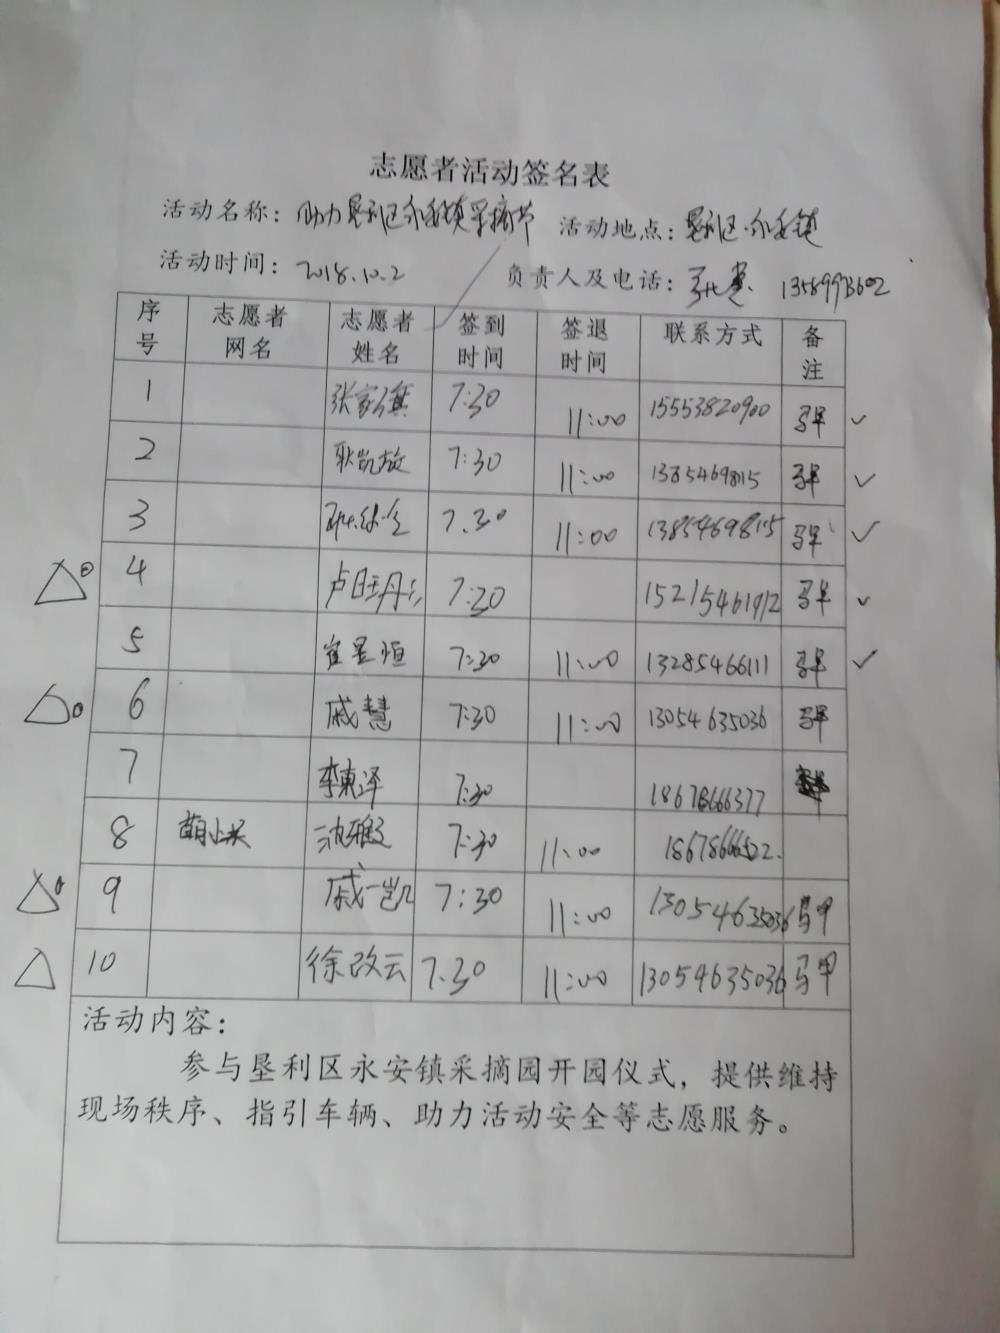 志愿者活动签名表
活动名称：助力垦利区永安镇采摘节 活动地点：垦利区永安镇
活动时间：2018.10.2 负责人及电话：
序号 志愿者网名 志愿者姓名 签到时间 签退时间 联系方式 备注
1 张家旗 7:30 11:00 15553820900 马甲 ✓
2 耿凯放 7:30 11:00 1385469815 马甲 ✓
3 7.30 11:00 13854698815 马甲 ✓
4 7:30 15215461912 马甲 ✓
5 崔昱恒 7:30 11:00 13285466111 马甲 ✓
6 戚慧 7:30 11:00 13054635036 马甲
7 李東泽 7:30
8 7:30 11:00
9 戚一凯 7:30 11:00 13054635036 马甲
10 徐改云 7.30 11:00 13054635036 马甲
活动内容：
参与垦利区永安镇采摘园开园仪式，提供维持
现场秩序、指引车辆、助力活动安全等志愿服务。